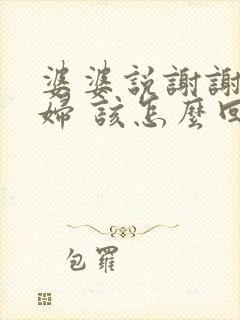 婆婆説謝謝
婦 該怎麼回
包羅